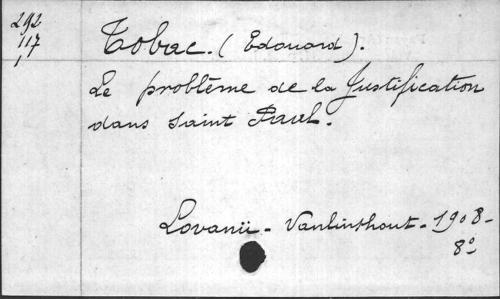 292
117
1
Tobac. (Edouard).
Le problème de la Justification
dans Saint Paul.
Lovanii - Vanlinthout - 1908 -
8º